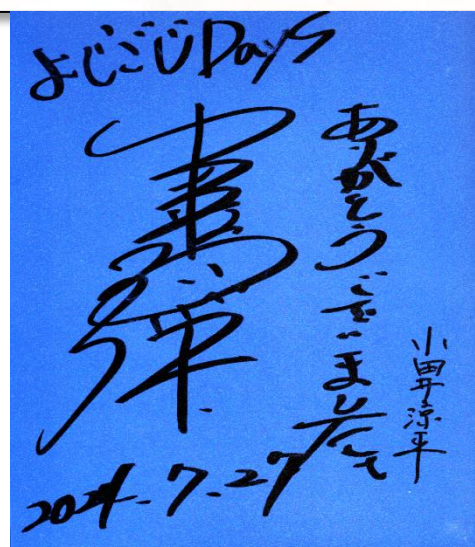 よじごじDays
ありがとうございました
小田井涼平
2024.7.27